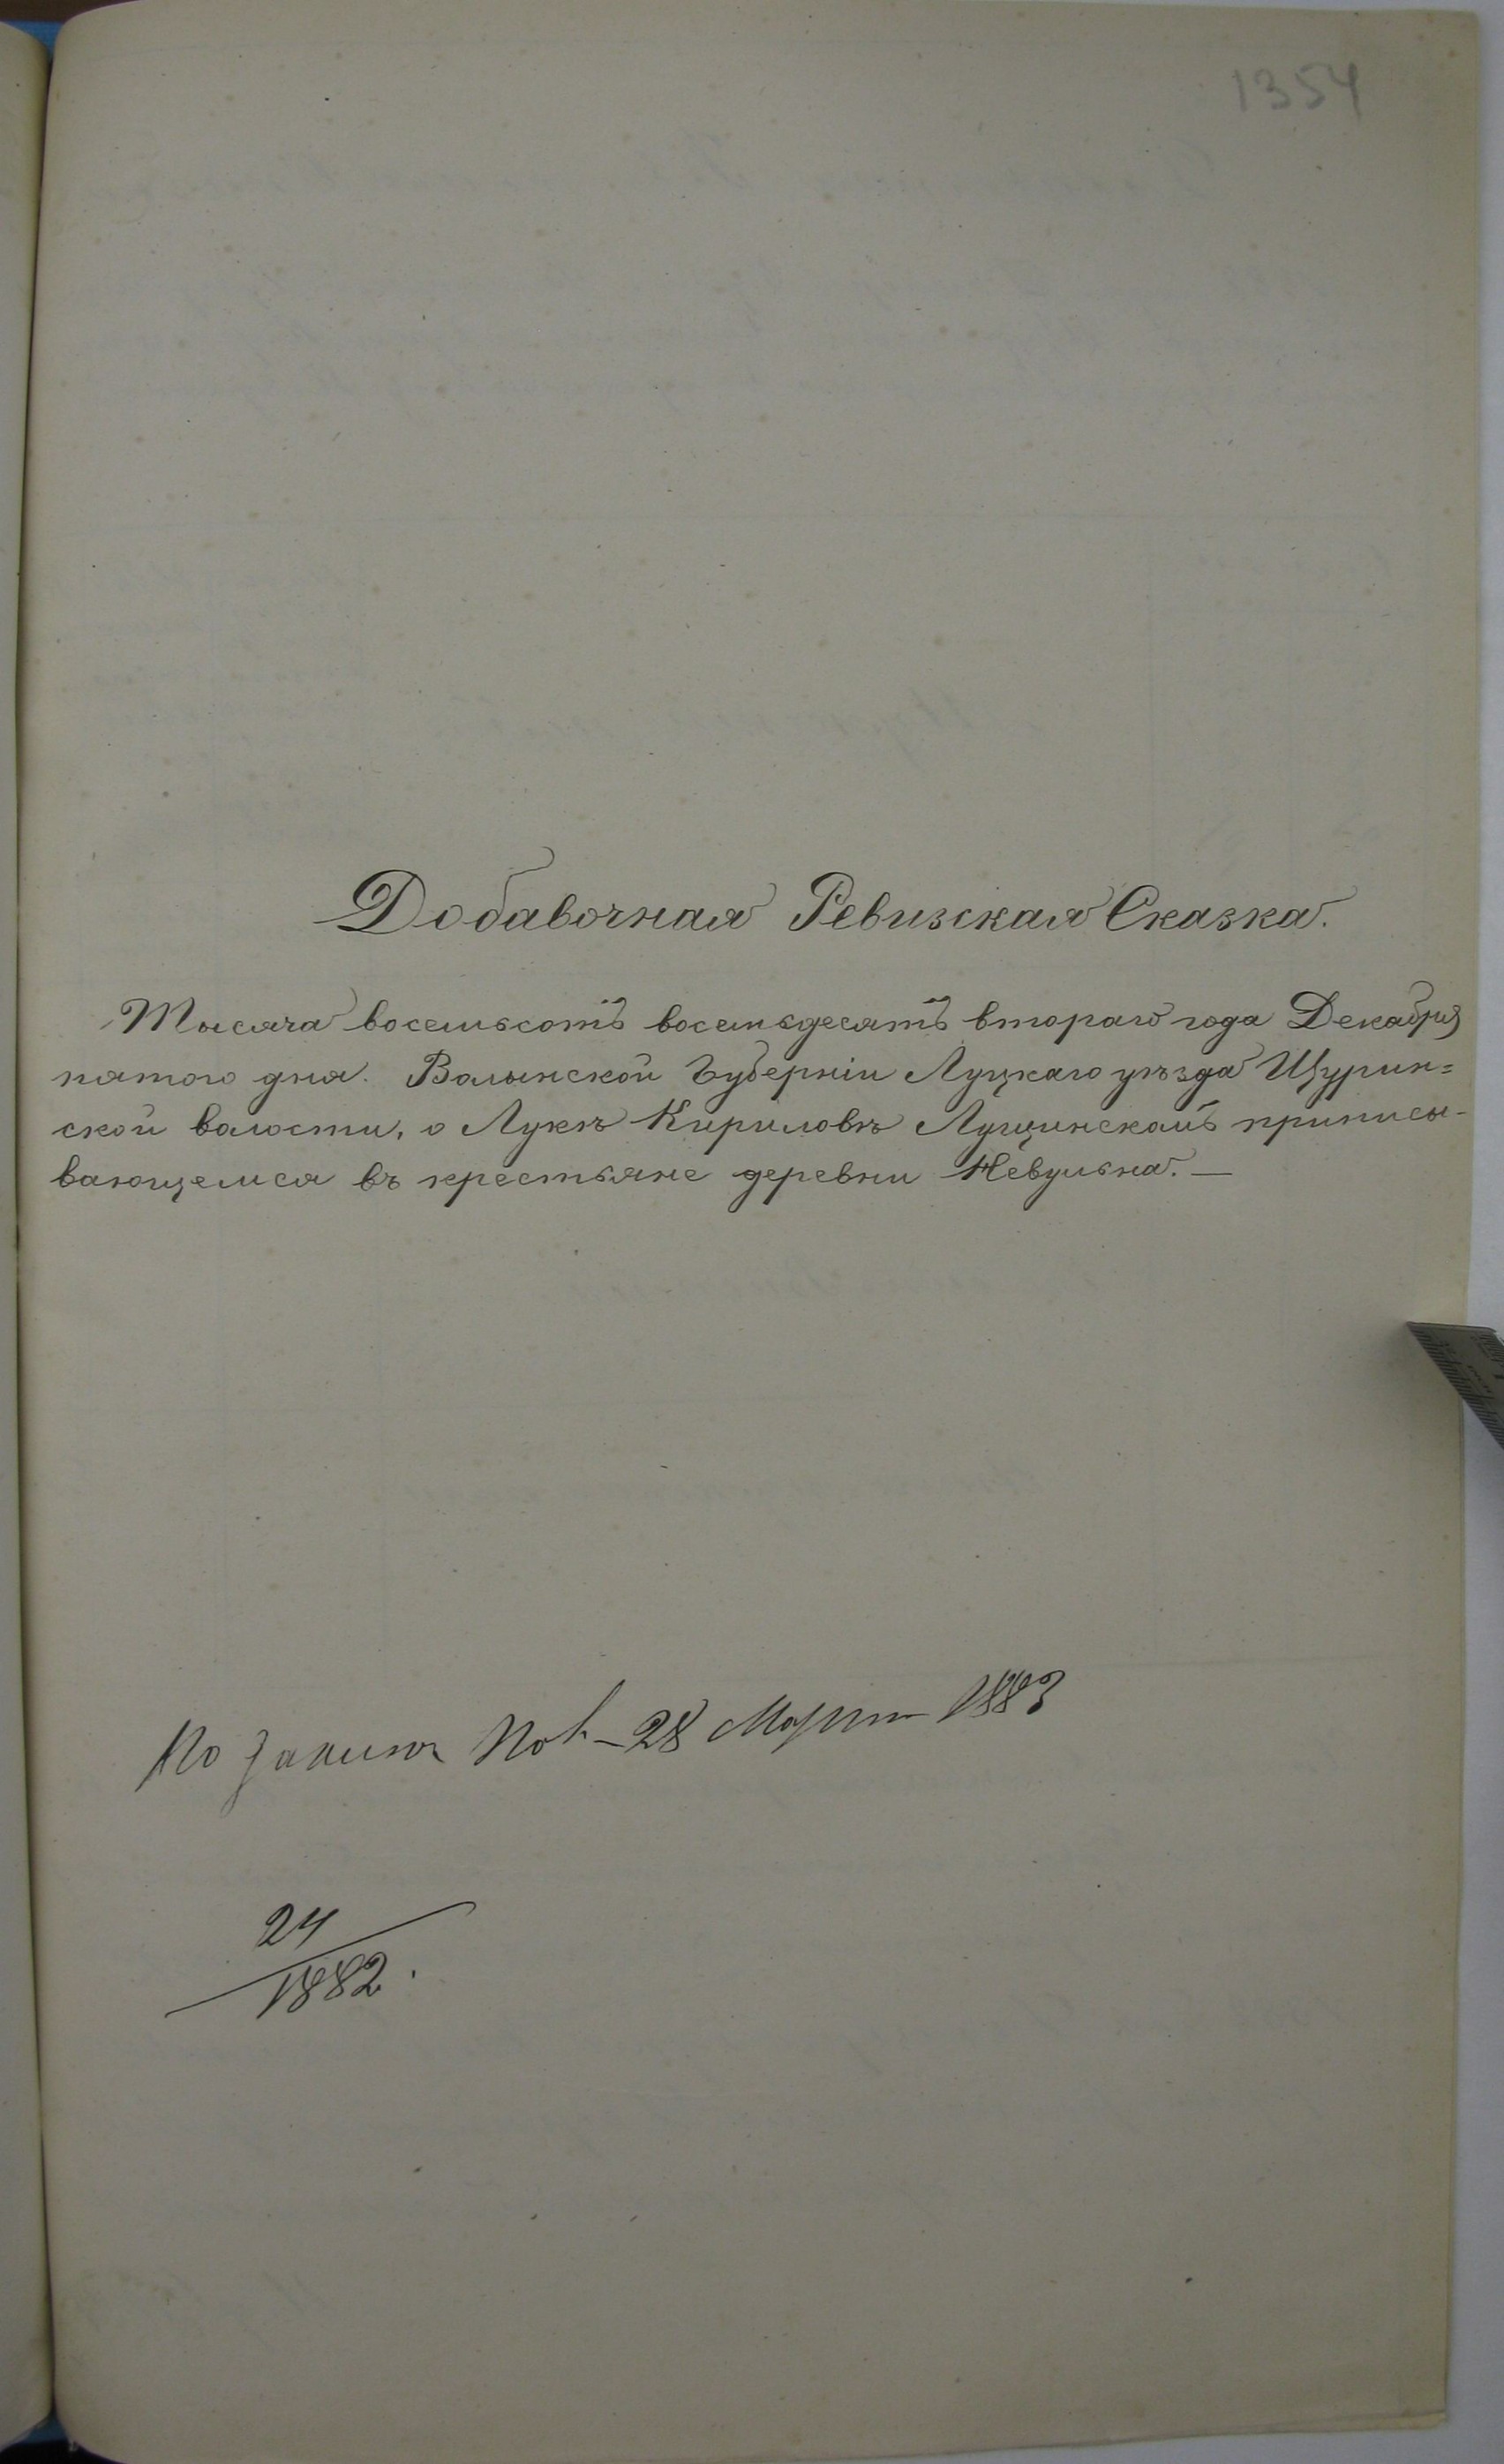 1354
Добавочная Ревизская Сказка.
Тысяча восемьсотъ восемьдесятъ втораго года Декабря
пятого дня. Волынской Губерніи Луцкаго уѣзда Щурин=
ской волости, о Лукѣ Кириловѣ Лущинскомъ приписы-
вающемся въ крестьяне деревни Невульна. —
По 28 Марта 1883
24
1882.